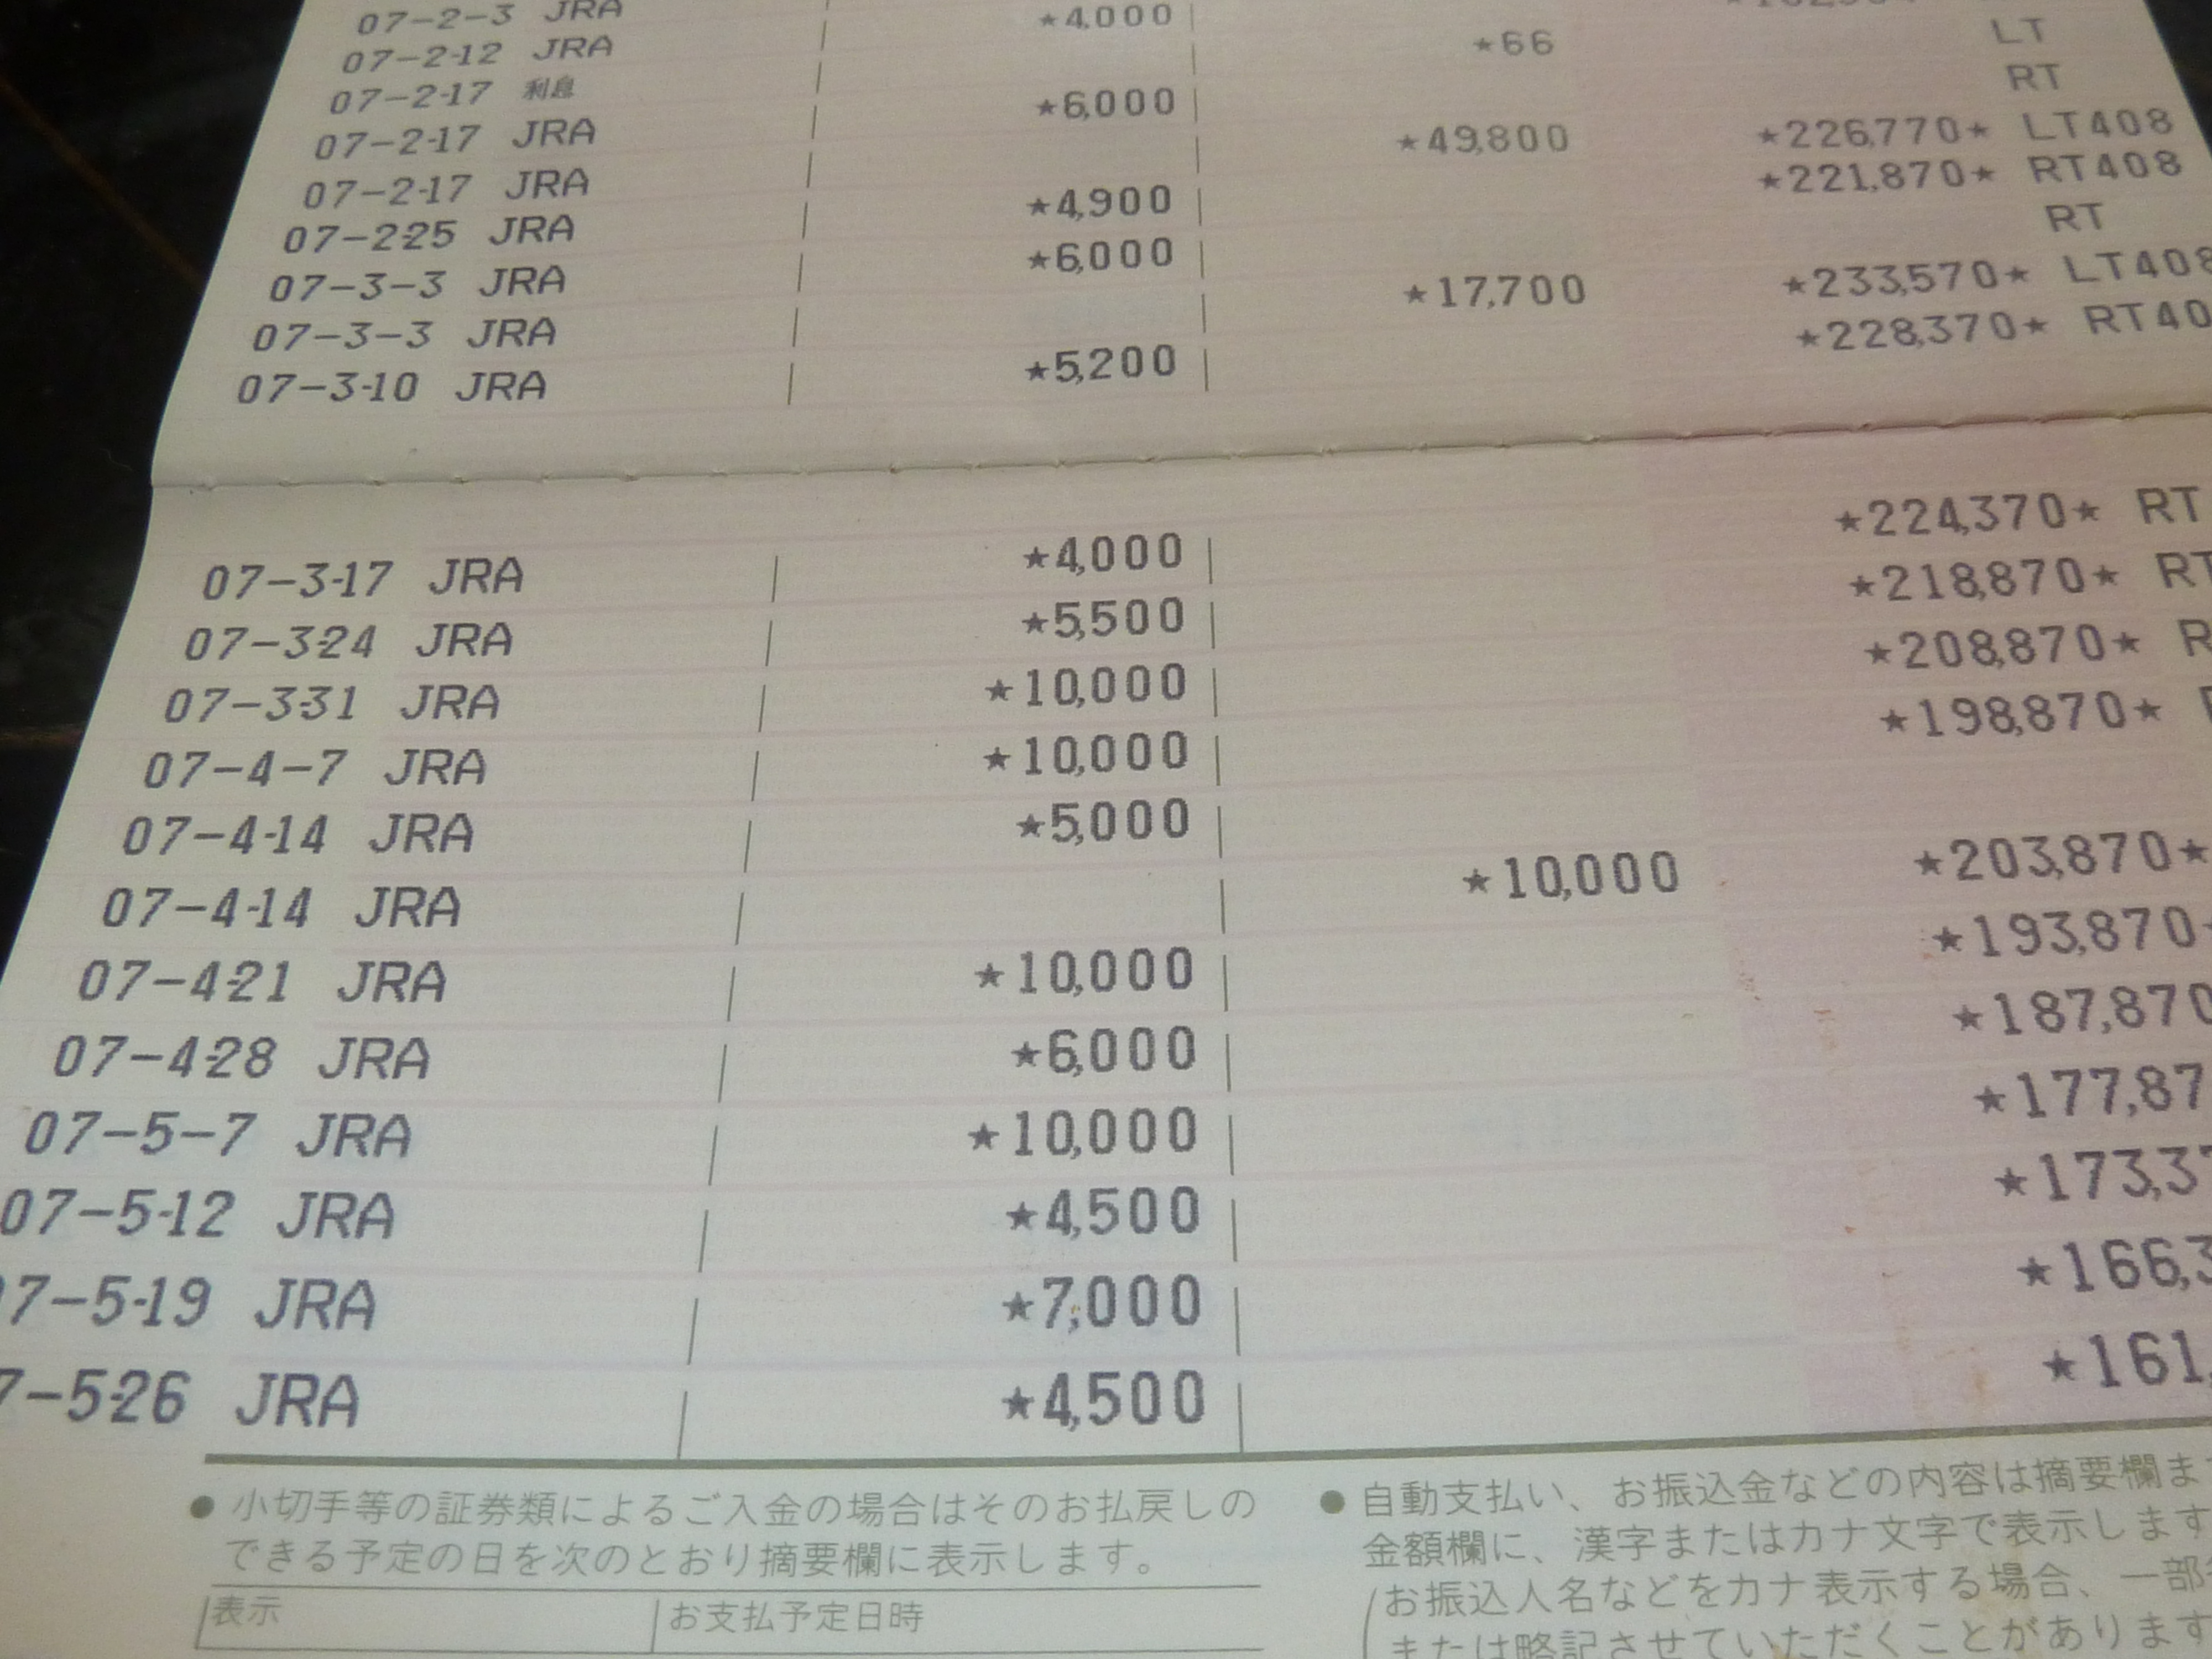 07-2-3 JRA
07-2-12 JRA ★4,000
07-2-17 利息 ★66 LT
07-2-17 JRA ★6,000 RT
07-2-17 JRA ★49,800 ★226,770★ LT408
07-2-25 JRA ★4,900 ★221,870★ RT408
07-3-3 JRA ★6,000 RT
07-3-3 JRA ★17,700 ★233,570★ LT408
07-3-10 JRA ★5,200 ★228,370★ RT40
07-3-17 JRA ★4,000 ★224,370★ RT
07-3-24 JRA ★5,500 ★218,870★ RT
07-3-31 JRA ★10,000 ★208,870★ R
07-4-7 JRA ★10,000 ★198,870★
07-4-14 JRA ★5,000
07-4-14 JRA ★10,000 ★203,870★
07-4-21 JRA ★10,000 ★193,870
07-4-28 JRA ★6,000 ★187,870
07-5-7 JRA ★10,000 ★177,87
07-5-12 JRA ★4,500 ★173,3
7-5-19 JRA ★7,000 ★166,3
7-5-26 JRA ★4,500 ★161,
●小切手等の証券類によるご入金の場合はそのお払戻しの
できる予定の日を次のとおり摘要欄に表示します。
表示 お支払予定日時
●自動支払い、お振込金などの内容は摘要欄ま
金額欄に、漢字またはカナ文字で表示します
(お振込人名などをカナ表示する場合、一部
または略記させていただくことがあります